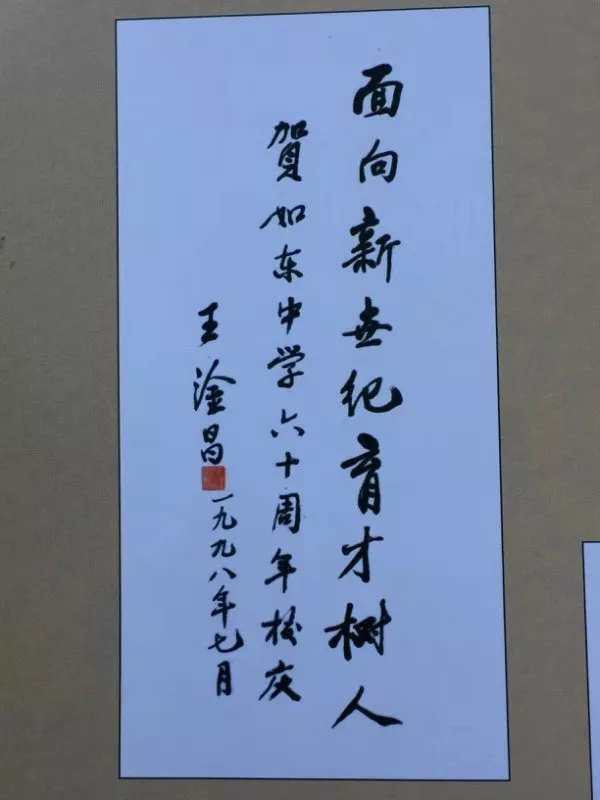 面向新世纪育才树人
贺如东中学六十周年校庆
王淦昌
一九九八年七月